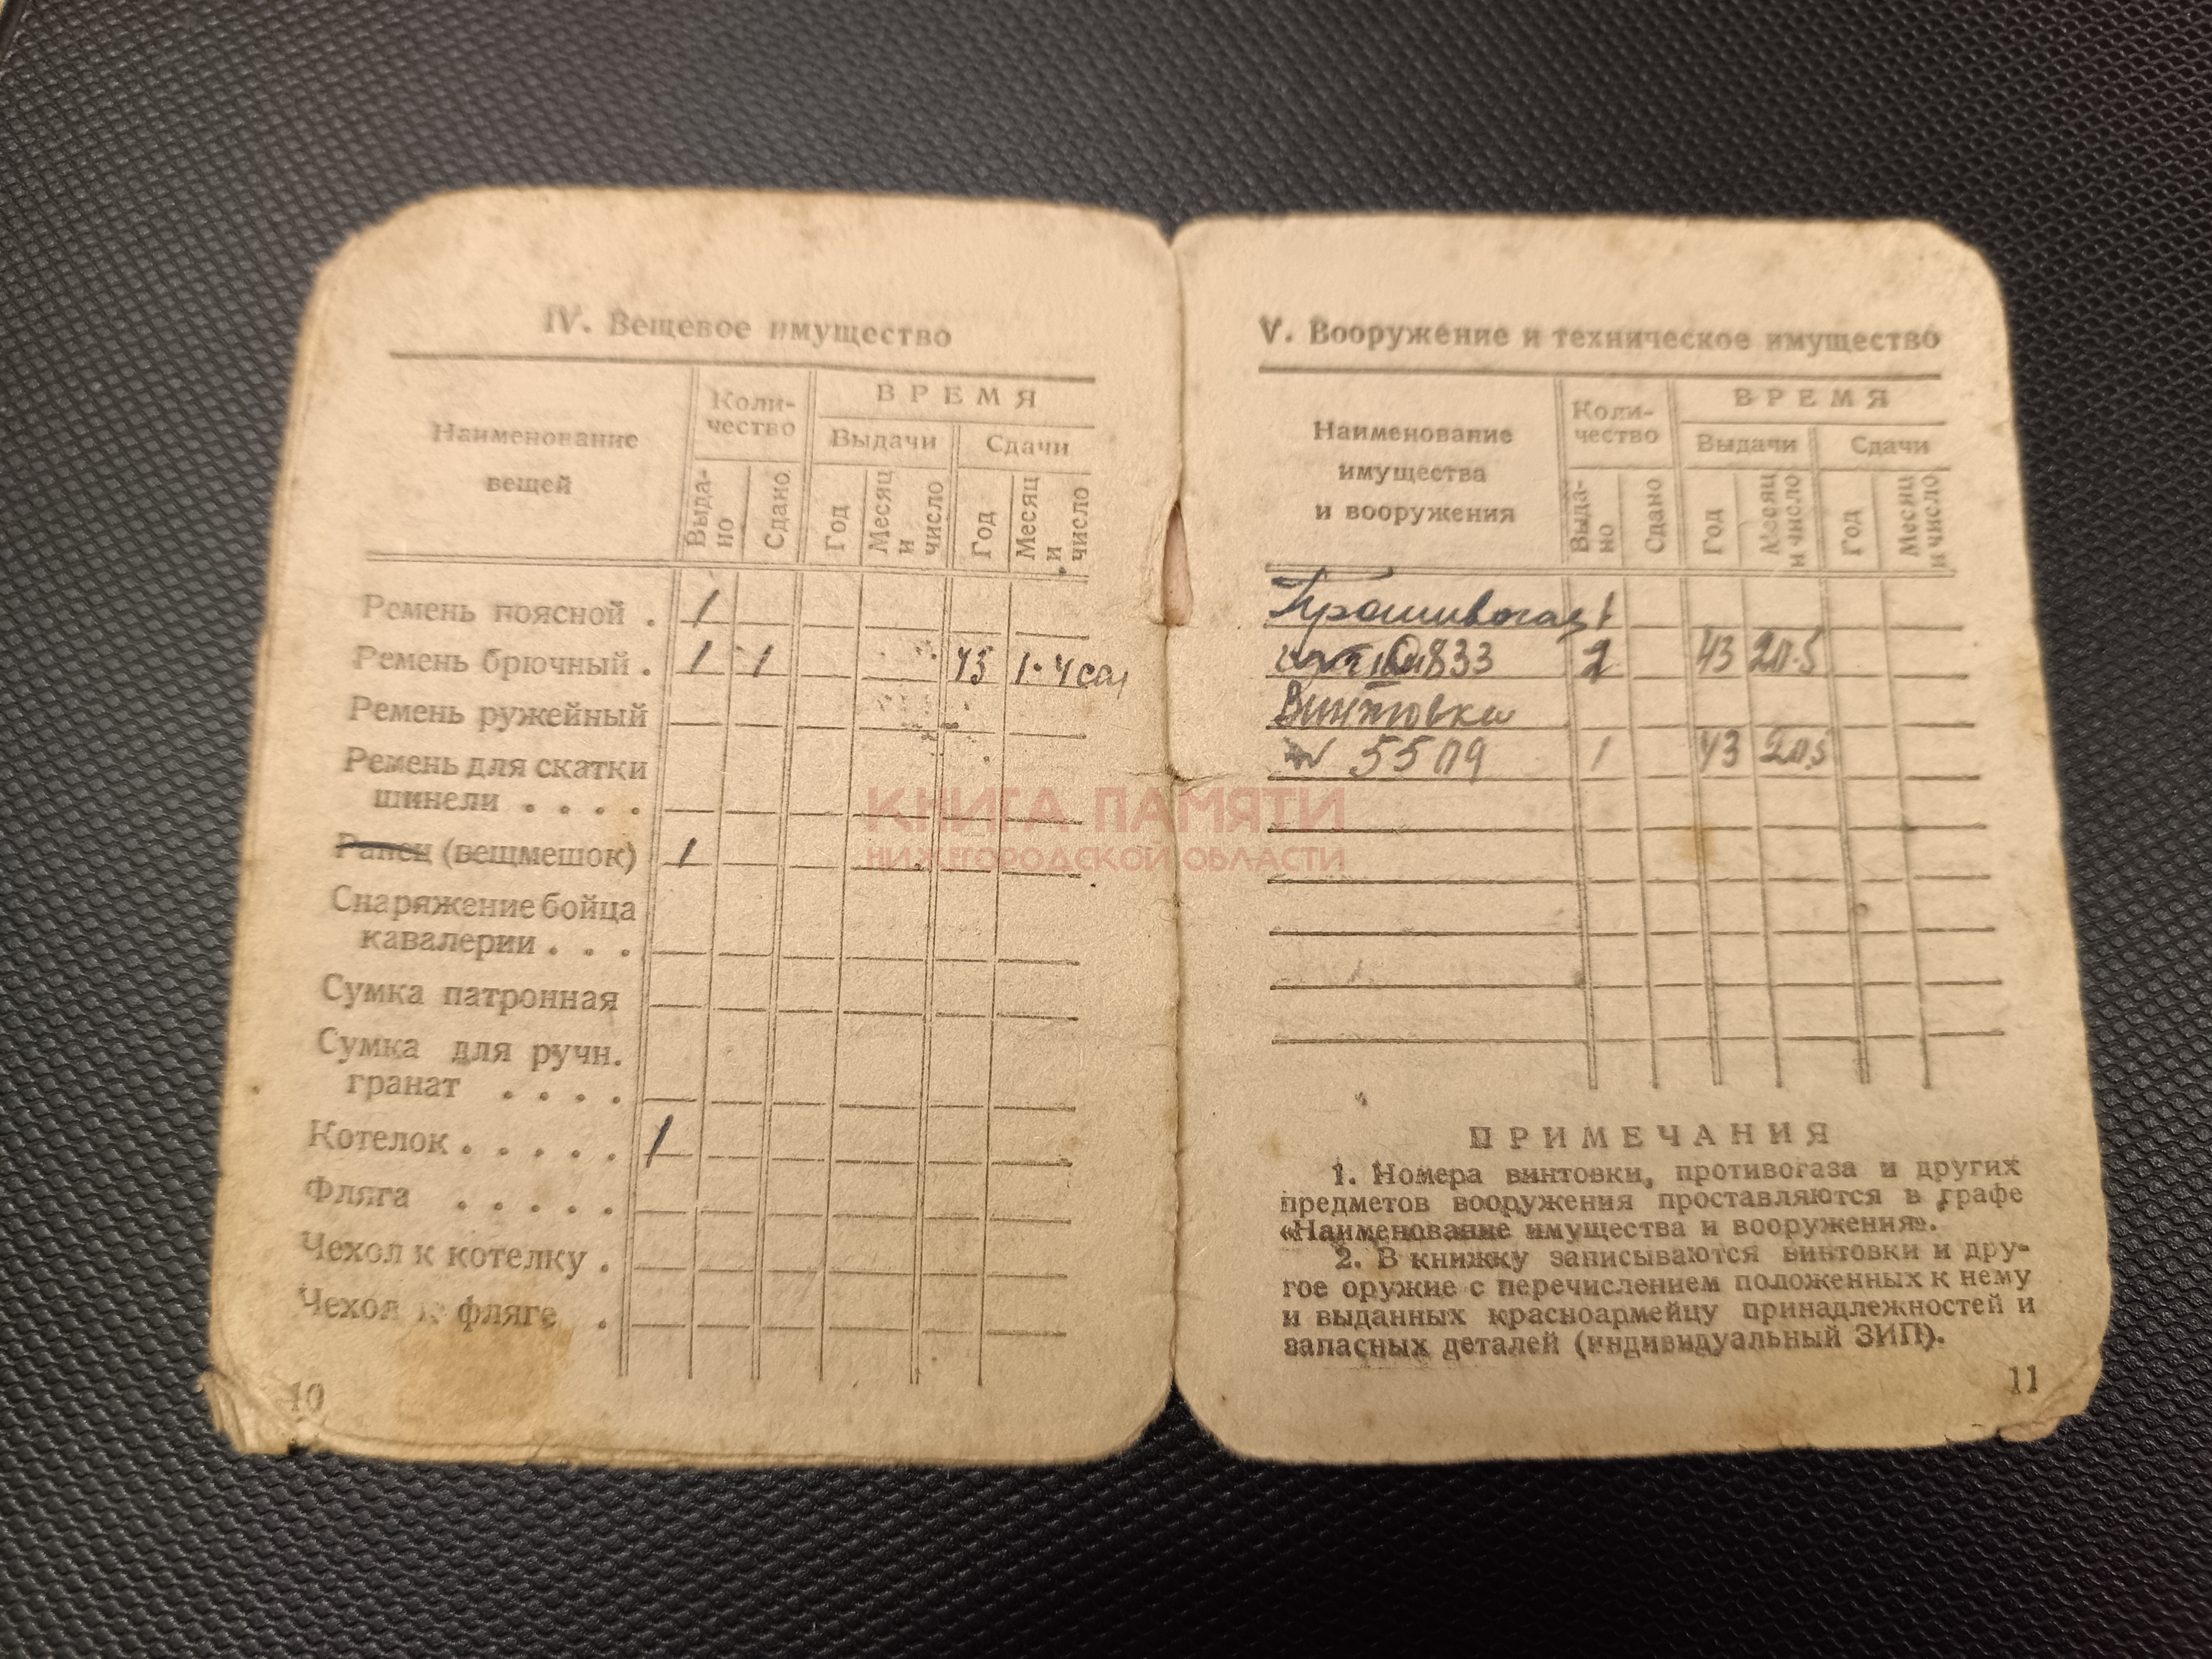 IV. Вещевое имущество
Наименование
вещей
Коли-
чество
ВРЕМЯ
Выдачи
Сдачи
Выда-
но
Сдано
Год
Месяц
и
число
Год
Месяц
и
число
Ремень поясной . 1
Ремень брючный . 1 1 45 1.4
Ремень ружейный
Ремень для скатки
шинели . . . .
Ранец (вещмешок) 1
Снаряжение бойца
кавалерии . . .
Сумка патронная
Сумка для ручн.
гранат . . . .
Котелок . . . . . 1
Фляга . . . . .
Чехол к котелку .
Чехол к фляге .
10
V. Вооружение и техническое имущество
Наименование
имущества
и вооружения
Коли-
чество
ВРЕМЯ
Выдачи
Сдачи
Выда-
но
Сдано
Год
Месяц
и число
Год
Месяц
и число
Противогаз 1
833 43
Винтовка
1 43
ПРИМЕЧАНИЯ
1. Номера винтовки, противогаза и других
предметов вооружения проставляются в графе
«Наименование имущества и вооружения».
2. В книжку записываются винтовки и дру-
гое оружие с перечислением положенных к нему
и выданных красноармейцу принадлежностей и
запасных деталей (индивидуальный ЗИП).
11
КНИГА ПАМЯТИ
НИЖЕГОРОДСКОЙ ОБЛАСТИ